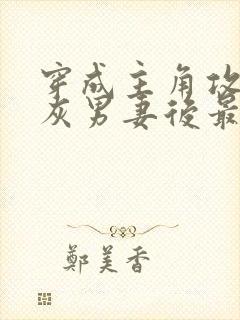 穿成主角攻
灰男妻後最
鄭美香